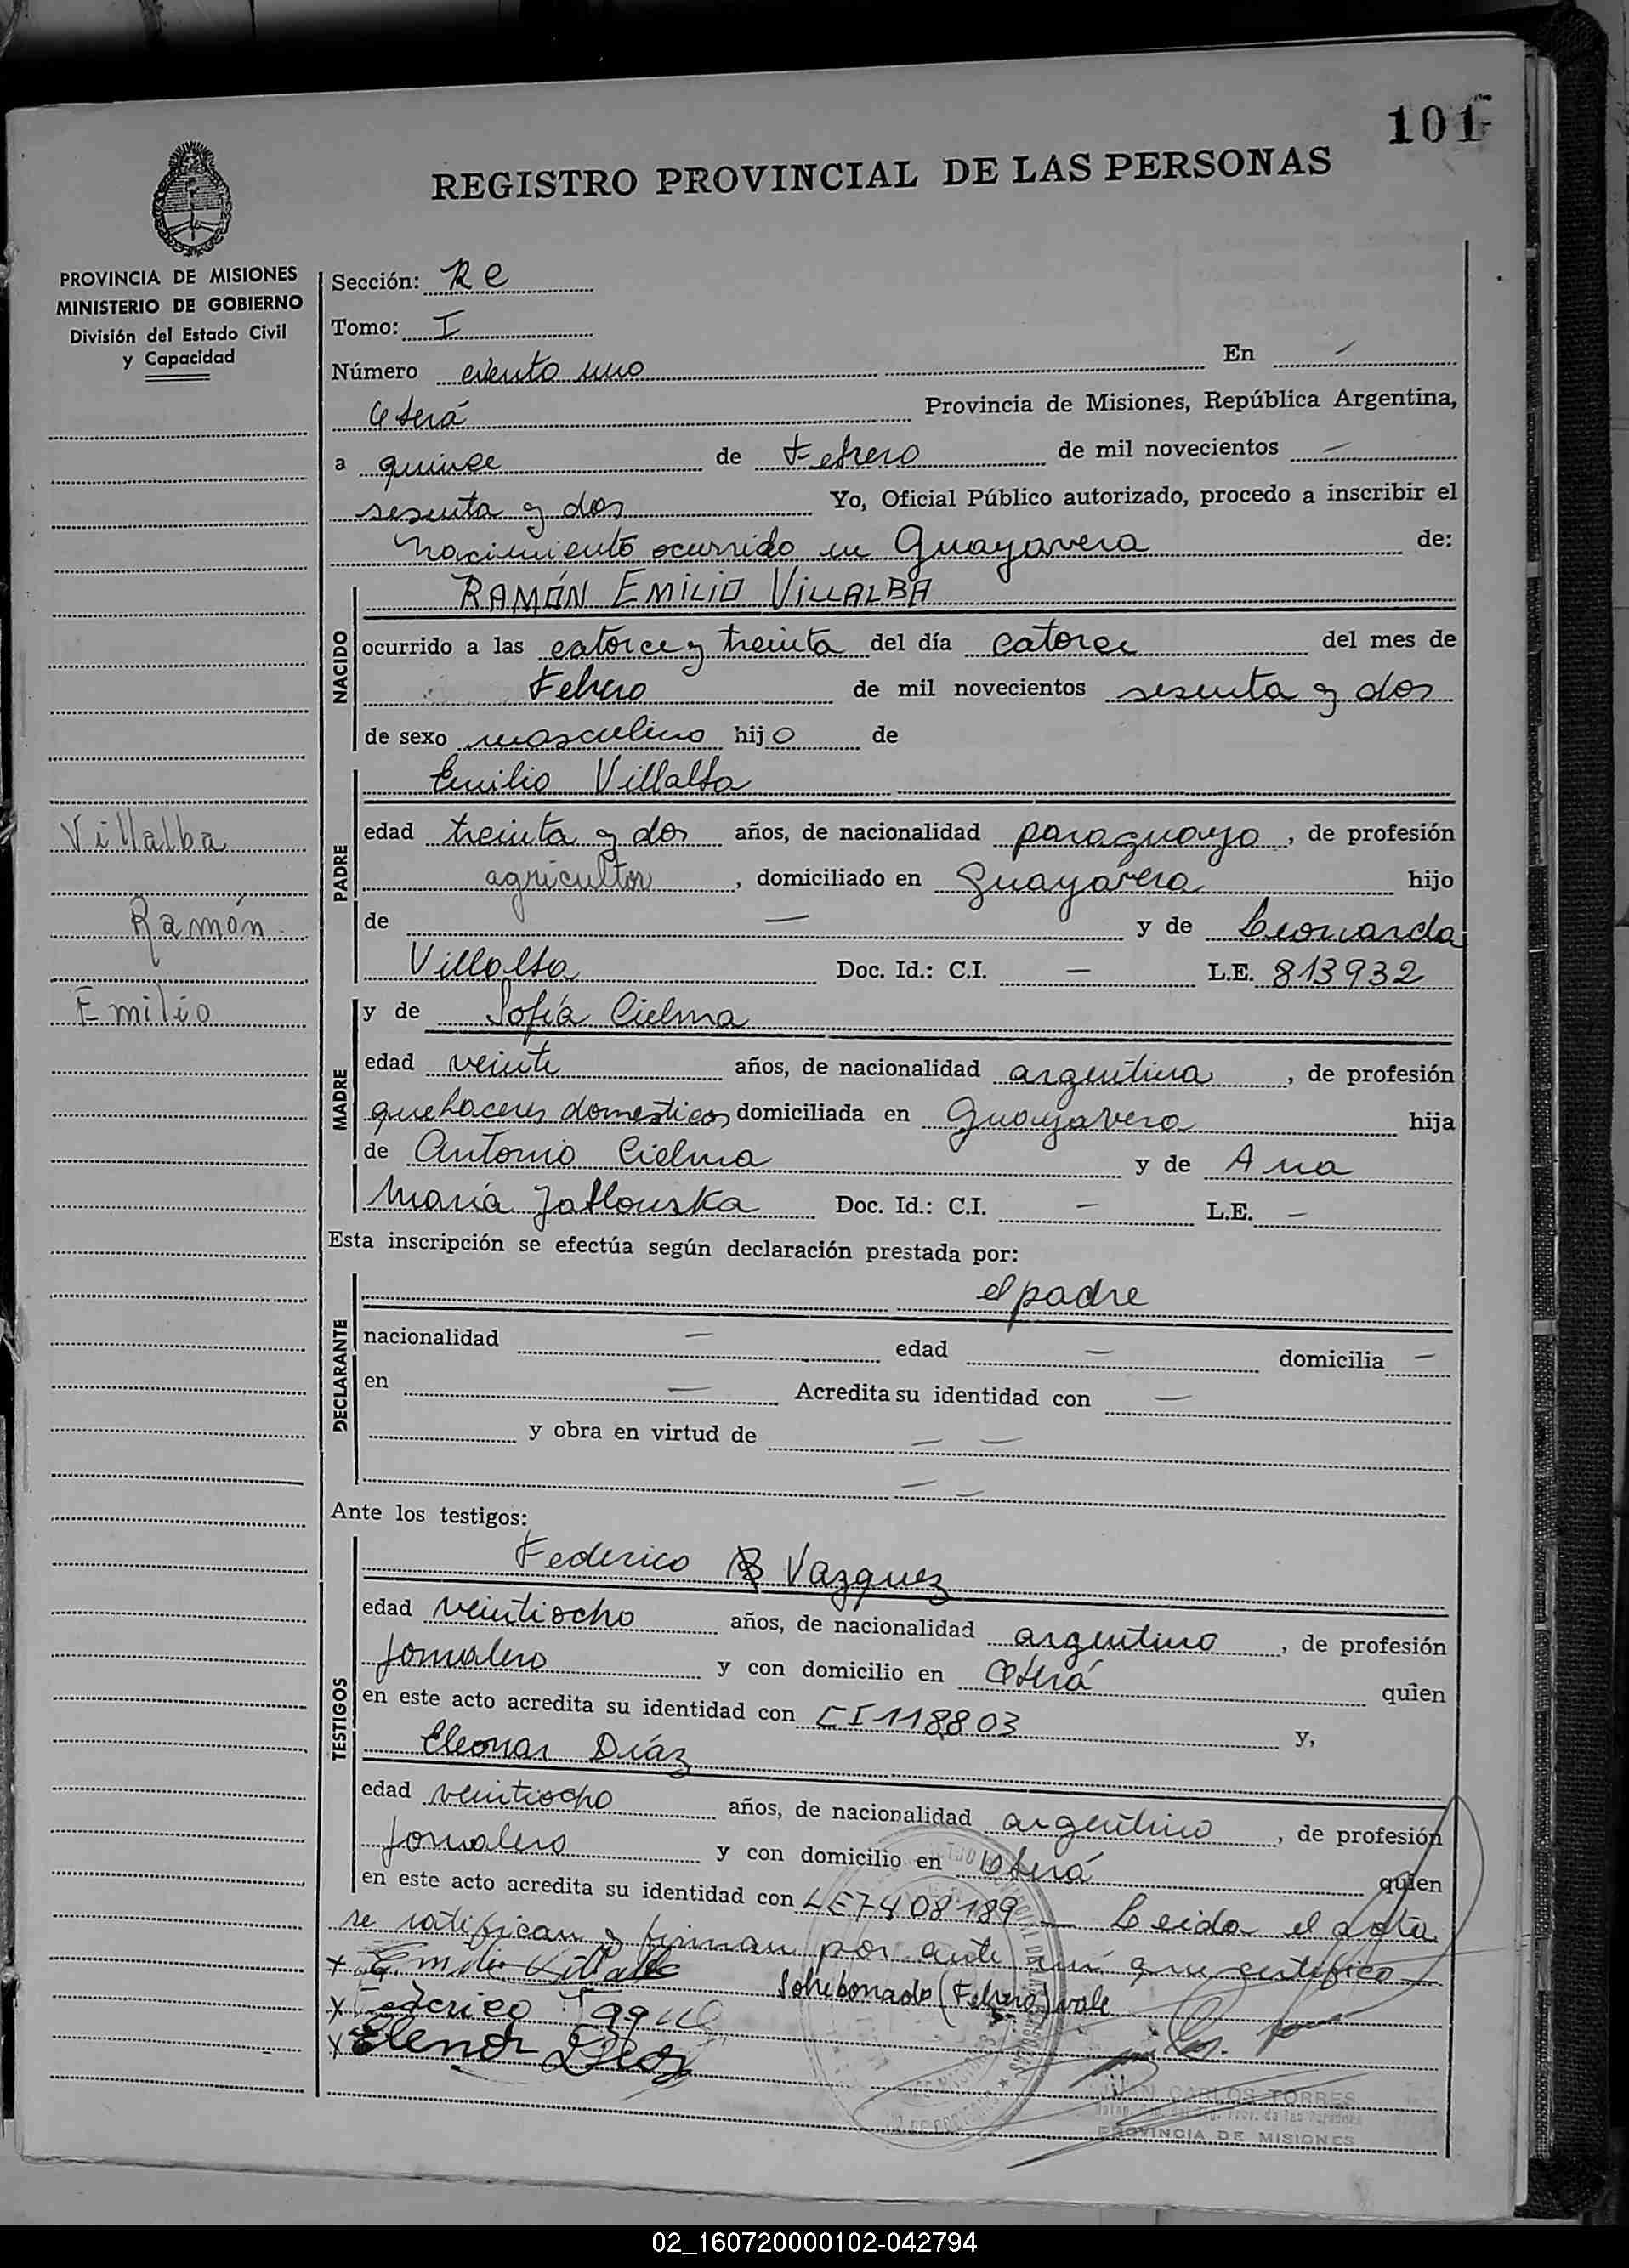 101
REGISTRO PROVINCIAL DE LAS PERSONAS
PROVINCIA DE MISIONES
MINISTERIO DE GOBIERNO
División del Estado Civil
y Capacidad
Villalba
Ramón
Emilio
Sección: Re
Tomo: I
Número ciento uno En —
Oberá Provincia de Misiones, República Argentina,
a quince de Febrero de mil novecientos —
sesenta y dos Yo, Oficial Público autorizado, procedo a inscribir el
nacimiento ocurrido en Guayavera de:
NACIDO
RAMÓN EMILIO VILLALBA
ocurrido a las catorce y treinta del día catorce del mes de
Febrero de mil novecientos sesenta y dos
de sexo masculino hijo de
PADRE
Emilio Villalba
edad treinta y dos años, de nacionalidad paraguayo, de profesión
agricultor, domiciliado en Guayavera hijo
de — y de Leonarda
Villalba Doc. Id.: C.I. — L.E. 813932
MADRE
y de Sofía Cielma
edad veinte años, de nacionalidad argentina, de profesión
quehaceres domesticos domiciliada en Guayavera hija
de Antonio Cielma y de Ana
María Jablouska Doc. Id.: C.I. — L.E. —
Esta inscripción se efectúa según declaración prestada por:
DECLARANTE
el padre
nacionalidad — edad — domicilia —
en — Acredita su identidad con —
y obra en virtud de — —
— —
Ante los testigos:
TESTIGOS
Federico Vazquez
edad veintiocho años, de nacionalidad argentino, de profesión
Jornalero y con domicilio en Oberá quien
en este acto acredita su identidad con CI 118803 y,
Eleonar Díaz
edad veintiocho años, de nacionalidad argentino, de profesión
Jornalero y con domicilio en Oberá quien
en este acto acredita su identidad con LE7408189 — Leida el acta
se ratifican y firman por ante mí que certifico
x Emilio Villalba Sobreborrado (Febrero) vale
x Federico
x Elenor Diaz
JUAN CARLOS TORRES
PROVINCIA DE MISIONES
02_160720000102-042794